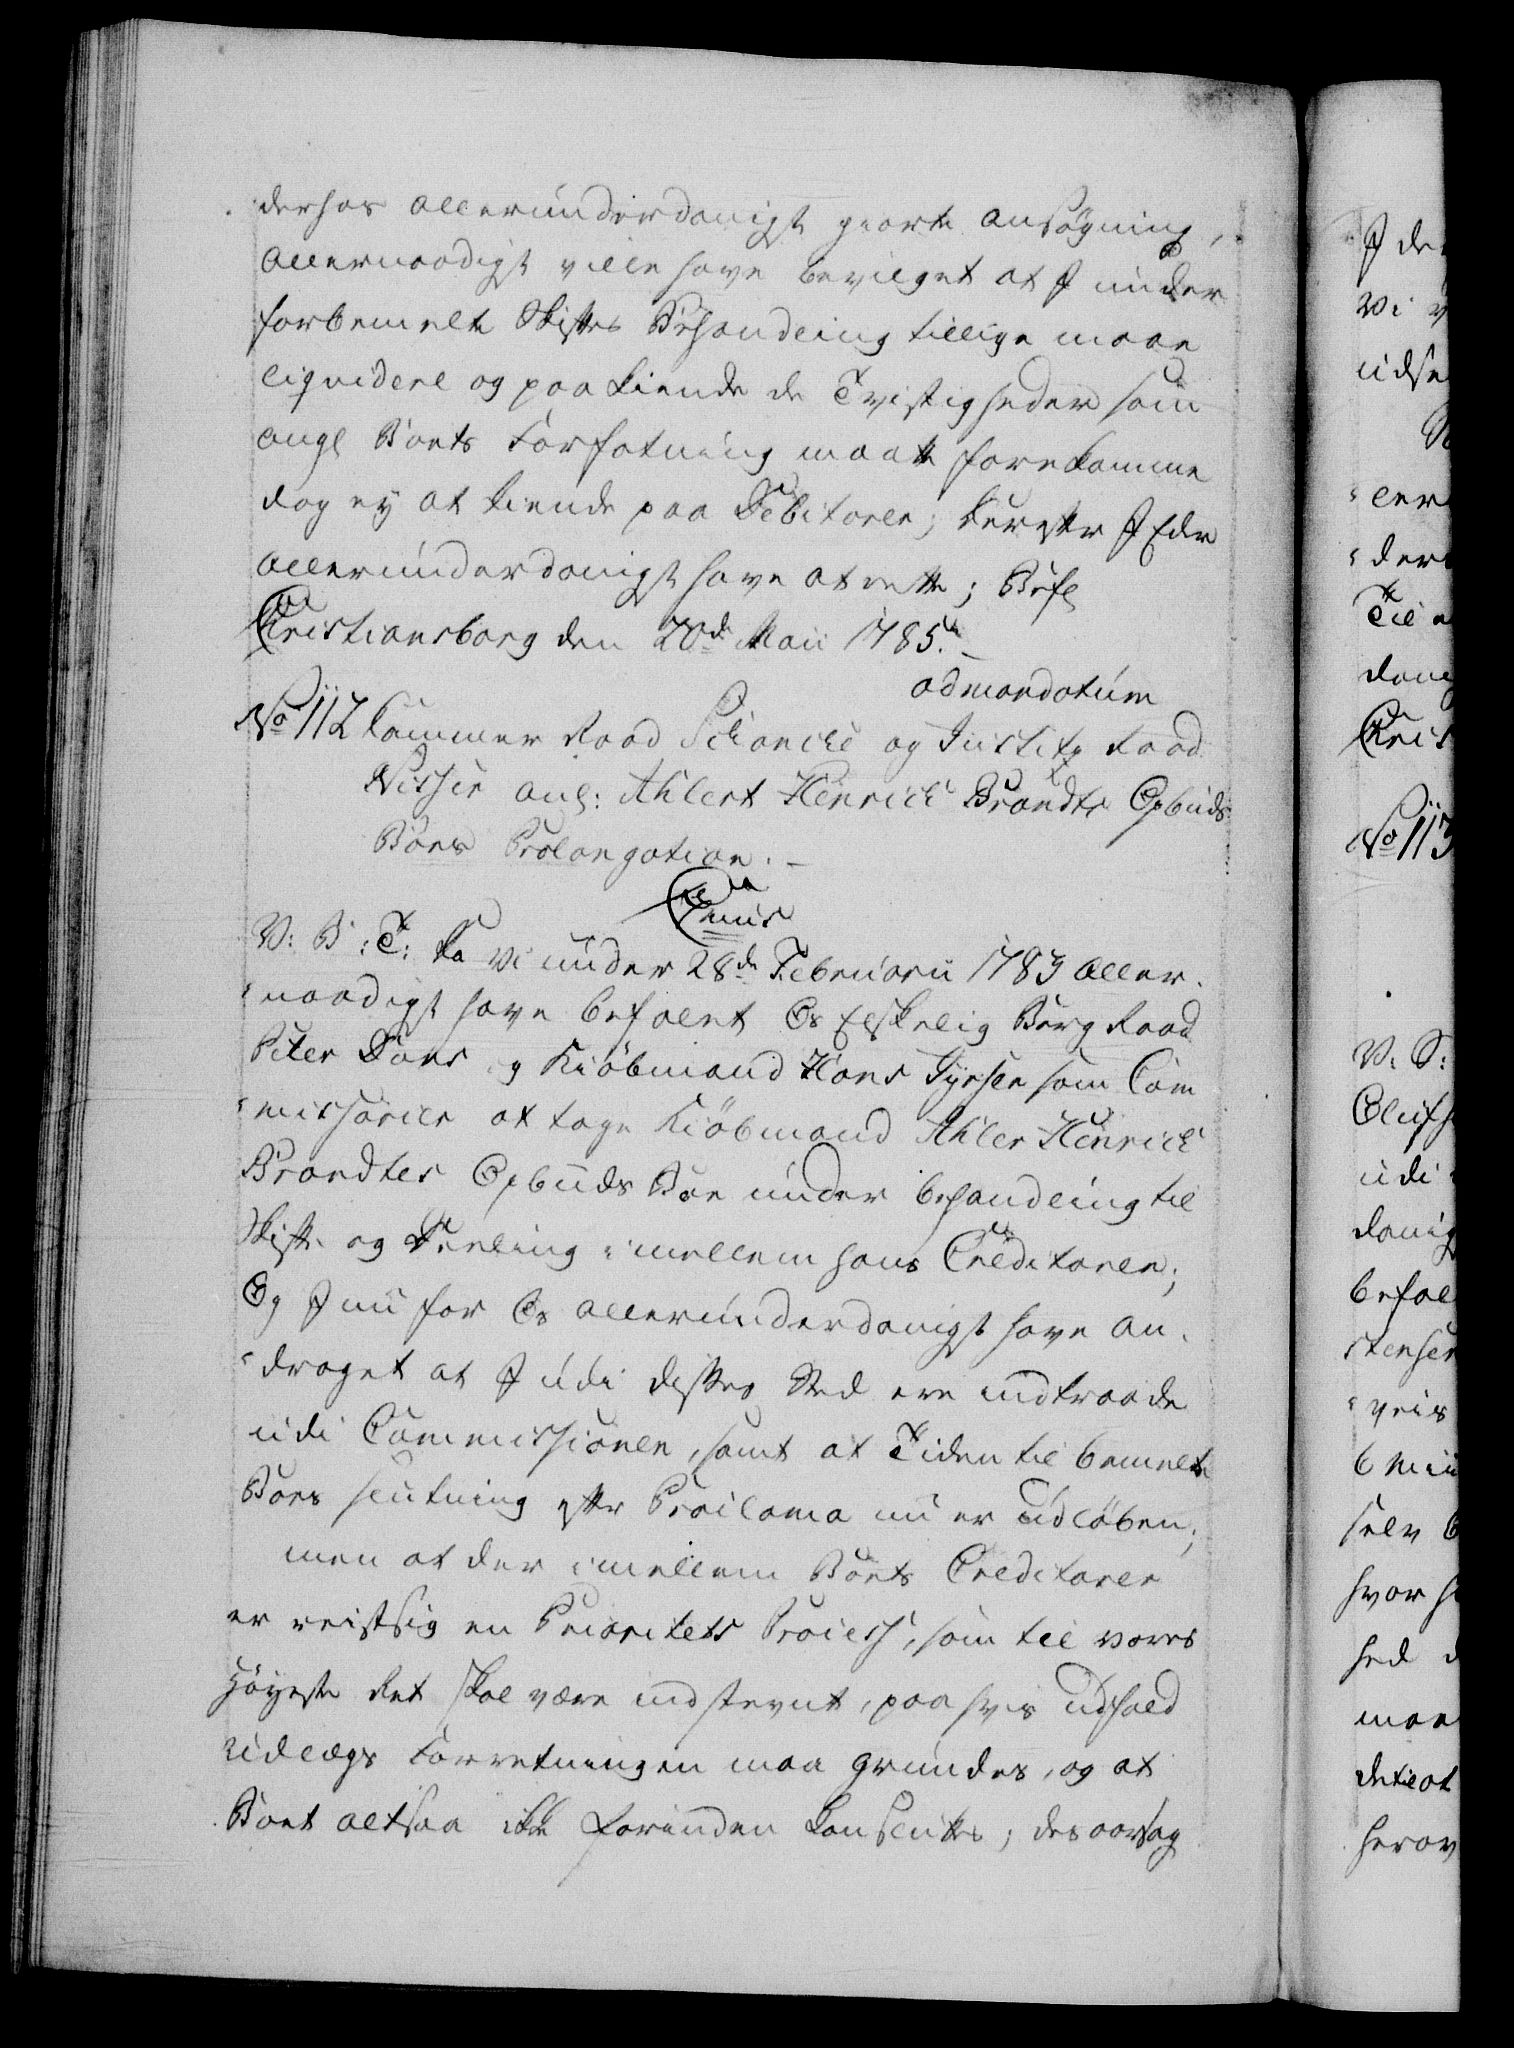 derhos allerunderdanigst giorte ansøgning,
allernaadigst ville have bevilget at I under
forbemelte Skiftes Behandling tillige maae
liqvidere og paakiende de Tvistigheder som
angl Boets Forfatning maatte forekomme
dog ey at kiende paa Debitorer; herefter I Eder
allerunderdanigst have at rette; Befl
Christiansborg den 20de Maii 1785.
ad mandatum
No 112 Cammer Raad Schancke og Justitz Raad
Nissen angl: Ahlert Henrich Brandts Opbuds
Boes Prolongation.
Cmus
V: B: T: Da vi under 28de Februarii 1783 aller-
naadigst have befalet Os Elskelig Berg Raad
Peter Dons og Kiøbmand Hans Jyrsen som Com
missarier at tage Kiøbmand Ahler Henrich
Brandtes Opbuds Boe under behandling til
Skifte og Deeling imellem hans Creditorer;
Og I nu for Os allerunderdanigst have an-
draget at I udi disses Sted ere indtraade
udi Commissionen, samt at Tiden til bemelte
Boes slutning efter Proclama nu er udløben;
men at der imellem Boets Creditorer
er reist sig en Prioritets Process, som til vores
Høyeste Ret skal være indstevnt, paa hvis udfald
udlægs Forretningen maa grundes, og at
Boet altsaa ikke forinden kan sluttes; des aarsag